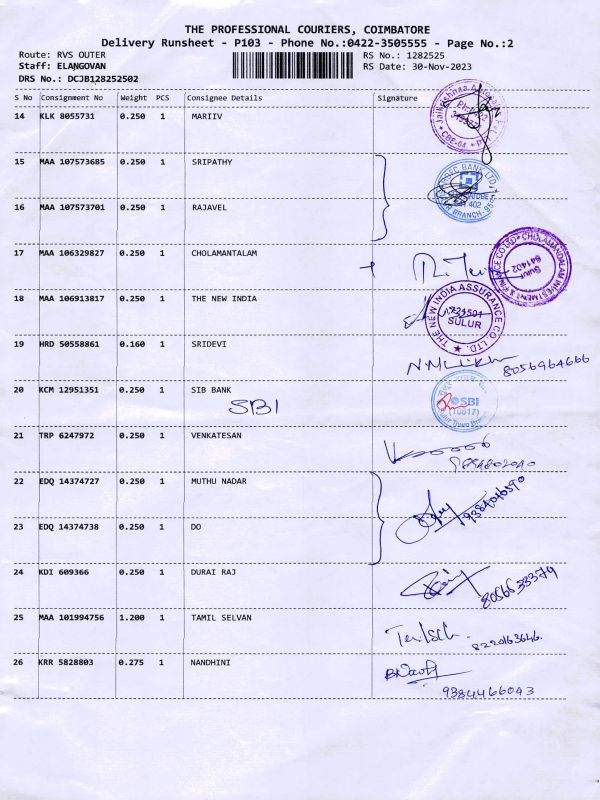 THE PROFESSIONAL COURIERS, COIMBATORE
Delivery Runsheet - P103 - Phone No.:0422-3505555 - Page No.:2
Route: RVS OUTER RS No.: 1282525
Staff: ELANGOVAN RS Date: 30-Nov-2023
DRS No.: DCJB128252502
S No Consignment No Weight PCS Consignee Details Signature
14 KLK 8055731 0.250 1 MARIIV
15 MAA 107573685 0.250 1 SRIPATHY
16 MAA 107573701 0.250 1 RAJAVEL
17 MAA 106329827 0.250 1 CHOLAMANTALAM
CHOLAMANDALAM INVESTMENT & FINANCE CO LTD
Sulur
641402
18 MAA 106913817 0.250 1 THE NEW INDIA
THE NEW INDIA ASSURANCE CO. LTD.
SULUR
19 HRD 50558861 0.160 1 SRIDEVI
8056964666
20 KCM 12951351 0.250 1 SIB BANK
SBI
SBI
(10617)
21 TRP 6247972 0.250 1 VENKATESAN
22 EDQ 14374727 0.250 1 MUTHU NADAR
23 EDQ 14374738 0.250 1 DO
24 KDI 609366 0.250 1 DURAI RAJ
25 MAA 101994756 1.200 1 TAMIL SELVAN
8220163646.
26 KRR 5828803 0.275 1 NANDHINI
9384466043